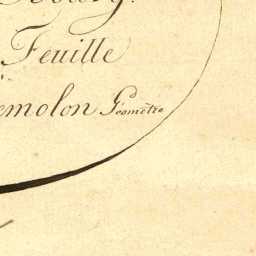 Feuille
emolon Géomètre